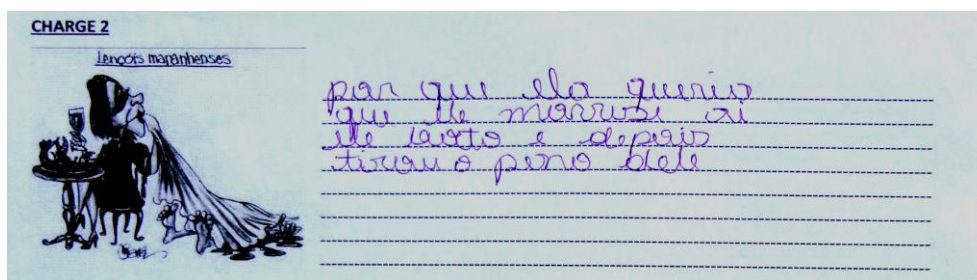 CHARGE 2
Lençóis maranhenses
por que ela queria
que ele morrese ai
ele
e depois
tirou o pano dele